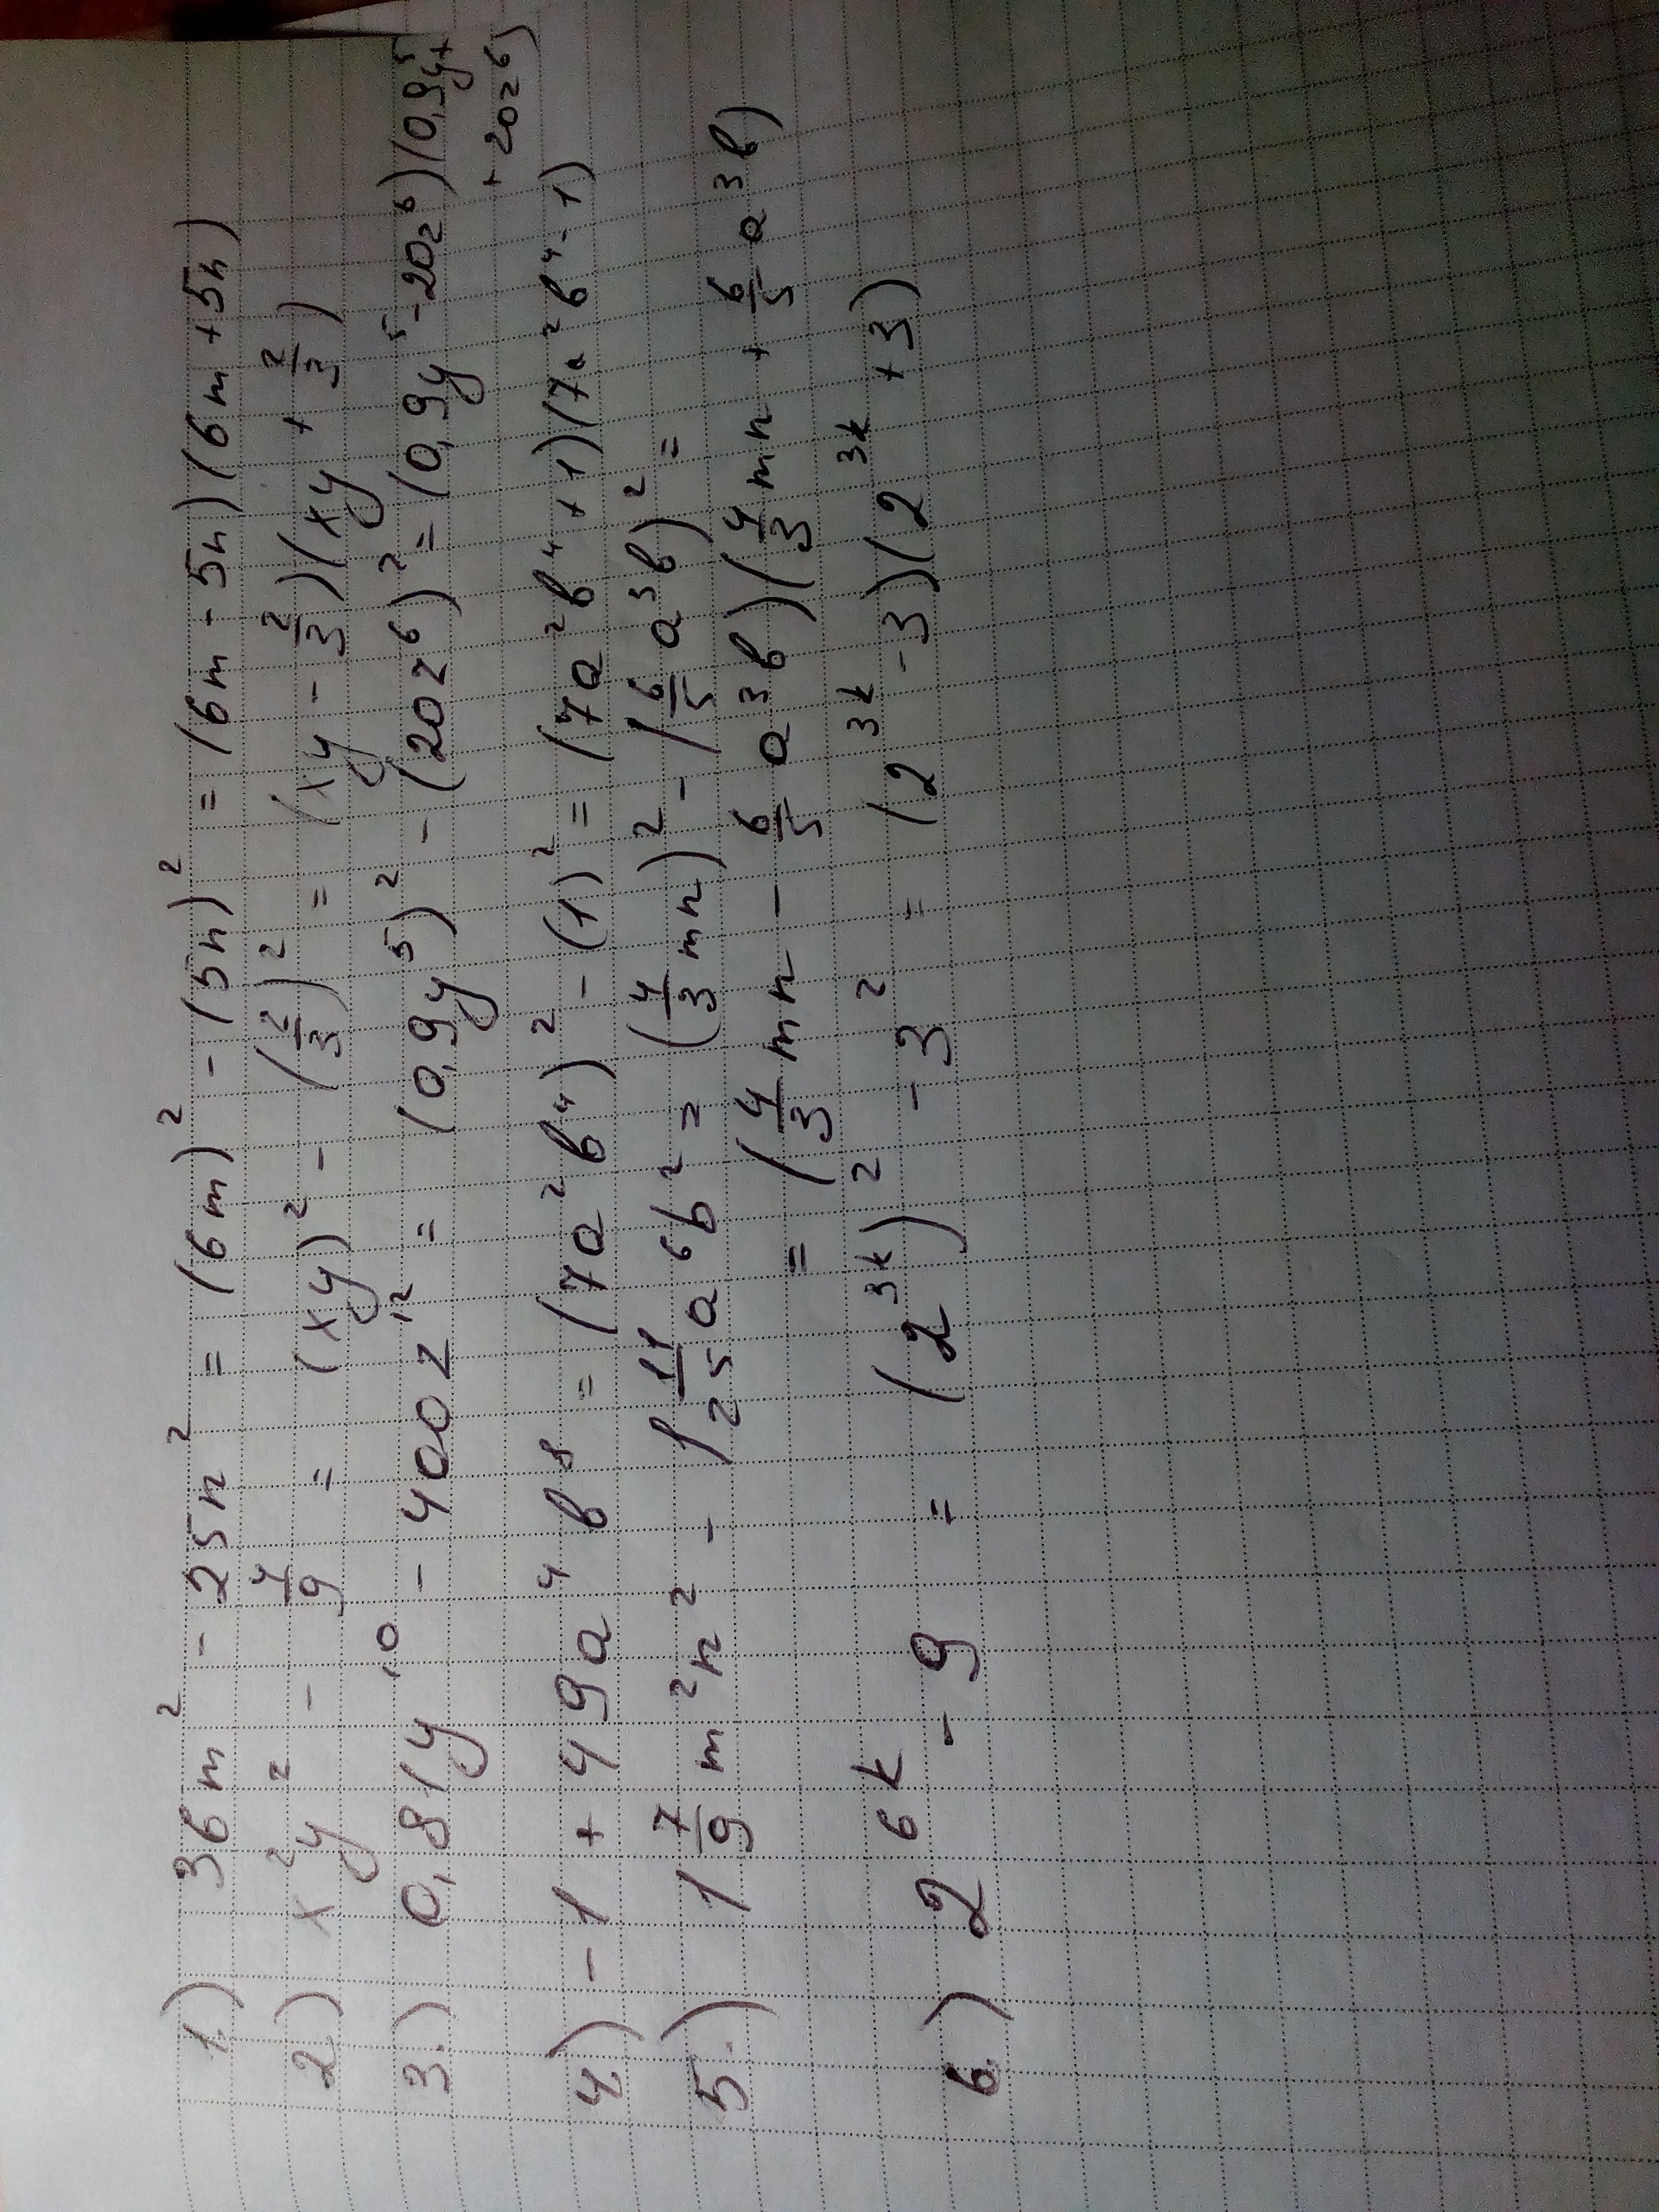 1.) 36m² - 25n² = (6m)² - (5n)² = (6m - 5n)(6m + 5n)
2) x²y² - 4/9 = (xy)² - (2/3)² = (xy - 2/3)(xy + 2/3)
3.) 0,81y¹⁰ - 400z¹² = (0,9y⁵)² - (20z⁶)² = (0,9y⁵ - 20z⁶)(0,9y⁵+
+ 20z⁶)
4) -1 + 49a⁴b⁸ = (7a²b⁴)² - (1)² = (7a²b⁴ + 1)(7a²b⁴ - 1)
5.) 1 7/9 m²n² - 1 11/25 a⁶b² = (4/3 mn)² - (6/5 a³b)² =
= (4/3 mn - 6/5 a³b)(4/3 mn + 6/5 a³b)
6.) 2⁶ᵏ - 9 = (2³ᵏ)² - 3² = (2³ᵏ - 3)(2³ᵏ + 3)